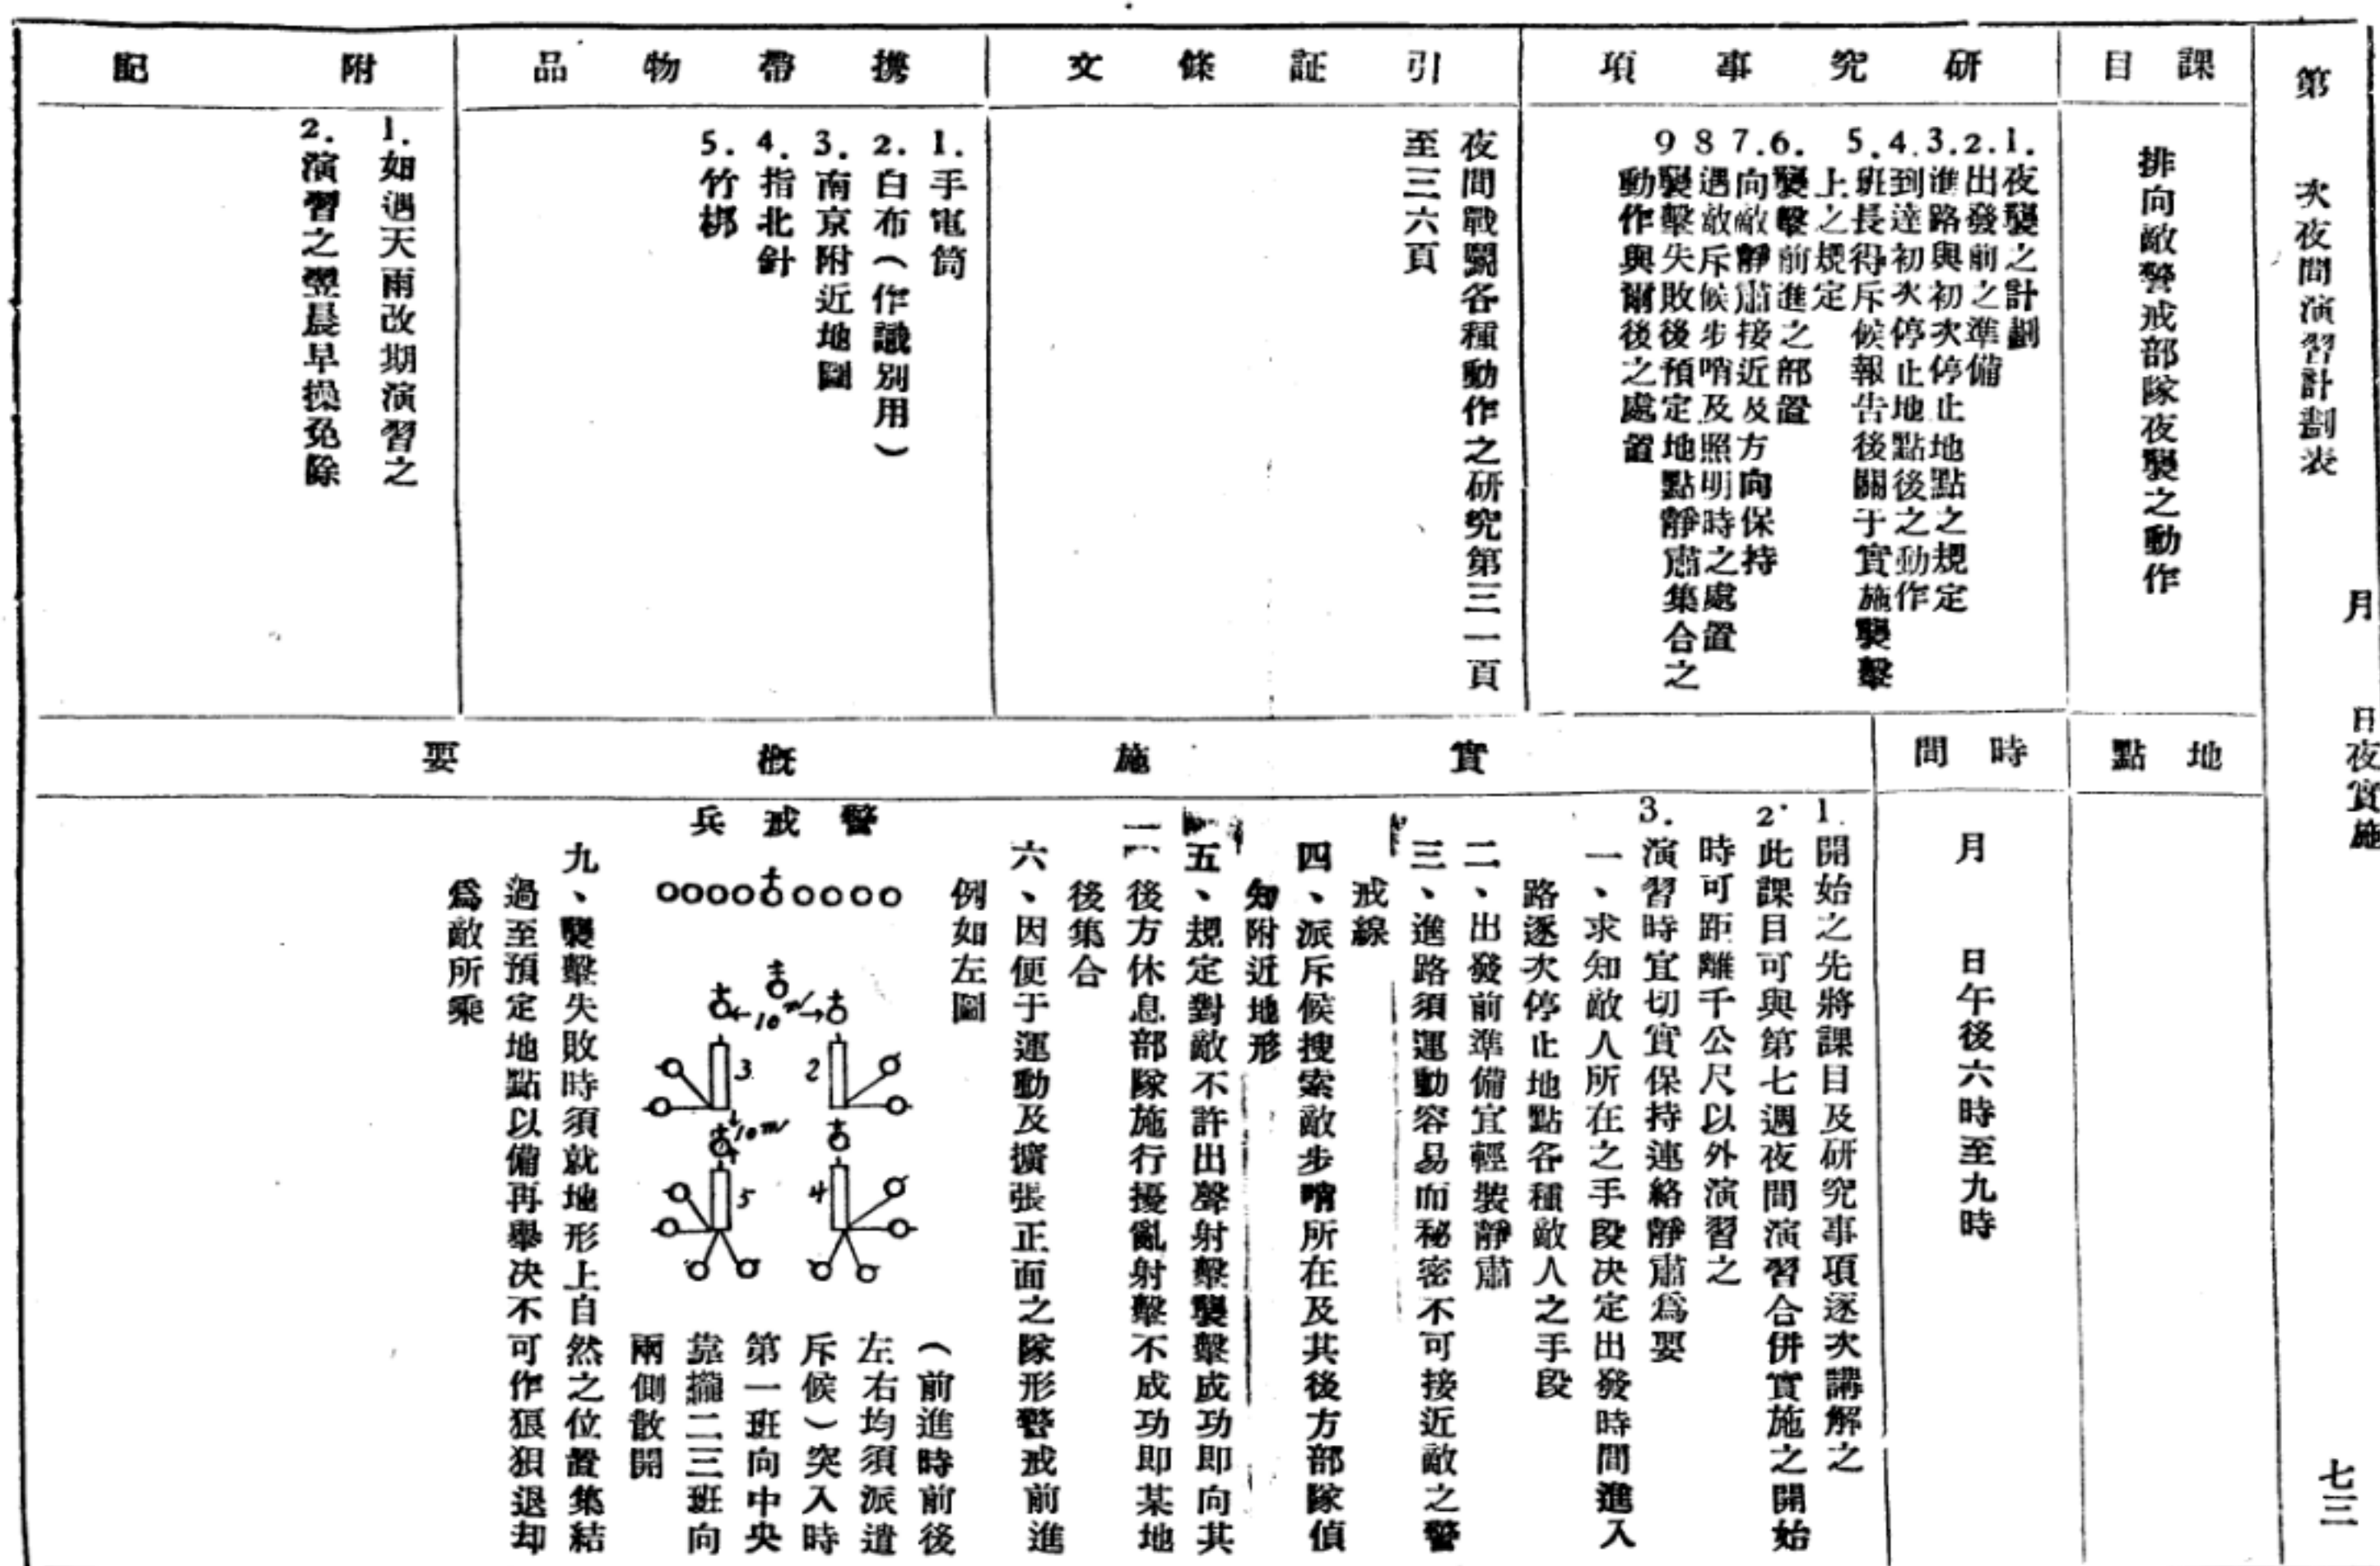 第　次夜間演習計劃表
月　日夜實施
七三
課目
排向敵警戒部隊夜襲之動作
研究事項
1.夜襲之計劃
2.出發前之準備
3.進路與初次停止地點之規定
4.到達初次停止地點後之動作
5.班長得斥候報告後關于實施襲擊
上之規定
6.襲擊前進之部置
7.向敵靜肅接近及方向保持
8遇敵斥候步哨及照明時之處置
9襲擊失敗後預定地點靜肅集合之
動作與爾後之處置
引証條文
夜間戰鬭各種動作之研究第三一頁
至三六頁
携帶物品
1.手電筒
2.白布(作識別用)
3.南京附近地圖
4.指北針
5.竹梆
附記
1.如遇天雨改期演習之
2.演習之翌晨早操免除
地點
時間
月　日午後六時至九時
實施概要
1.開始之先將課目及研究事項逐次講解之
2.此課目可與第七週夜間演習合併實施之開始
時可距離千公尺以外演習之
3.演習時宜切實保持連絡靜肅爲要
一、求知敵人所在之手段決定出發時間進入
路逐次停止地點各種敵人之手段
二、出發前準備宜輕裝靜肅
三、進路須運動容易而秘密不可接近敵之警
戒線
四、派斥候搜索敵步哨所在及其後方部隊偵
知附近地形
五、規定對敵不許出聲射擊襲擊成功即向其
後方休息部隊施行擾亂射擊不成功即某地
後集合
六、因便于運動及擴張正面之隊形警戒前進
例如左圖
警戒兵
10m
3
2
10m
5
4
(前進時前後
左右均須派遣
斥候)突入時
第一班向中央
靠攏二三班向
兩側散開
九、襲擊失敗時須就地形上自然之位置集結
過至預定地點以備再舉决不可作狼狽退却
爲敵所乘